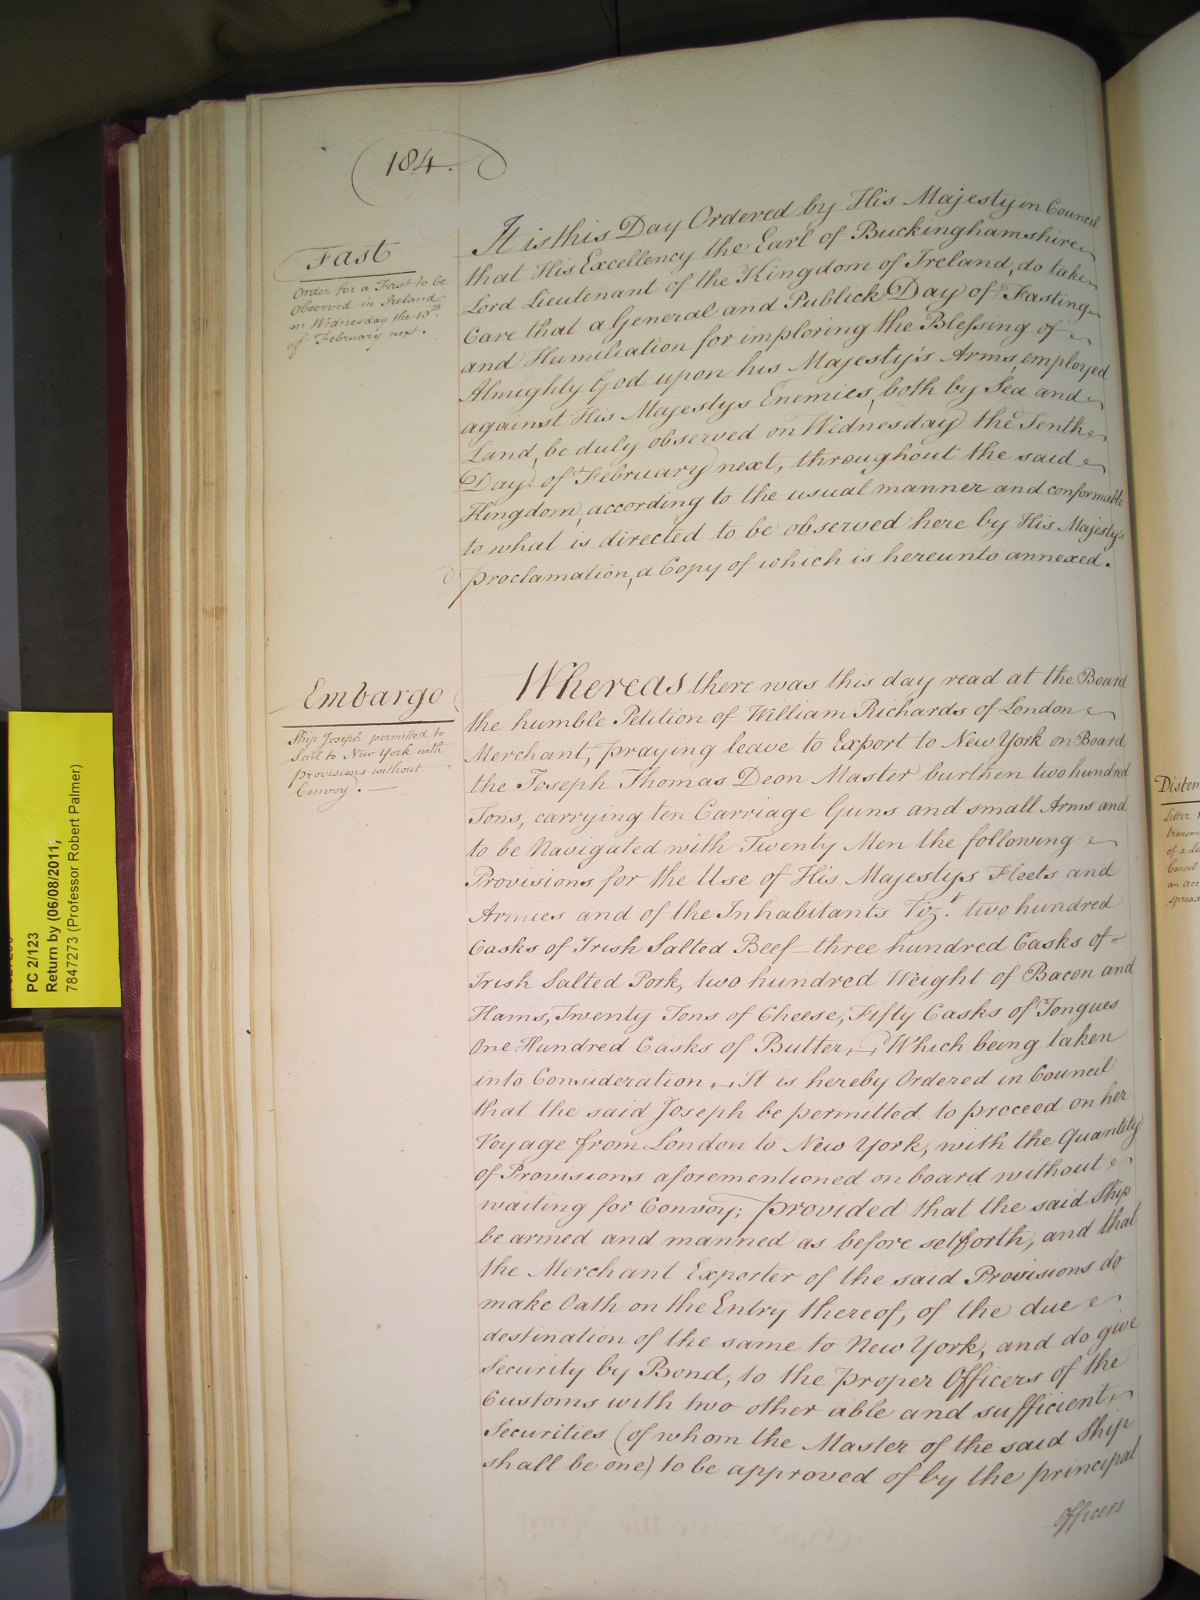 184.
Fast
Order for a Fast to be
Observed in Ireland
on Wednesday the 10th.
of February next.
It is this Day Ordered by His Majesty in Council
that His Excellency the Earl of Buckinghamshire
Lord Lieutenant of the Kingdom of Ireland, do take
Care that a General and Publick Day of Fasting
and Humiliation for imploring the Blessing of
Almighty God upon his Majesty's Arms, employed
against His Majestys Enemies, both by Sea and
Land, be duly observed on Wednesday the Tenth
Day of February next, throughout the said
Kingdom, according to the usual manner and conformable
to what is directed to be observed here by His Majesty's
Proclamation, a Copy of which is hereunto annexed.
Embargo
Ship Joseph permitted to
Sail to New York with
provisions without
Convoy.
Whereas there was this day read at the Board
the humble Petition of William Richards of London
Merchant, praying leave to Export to New York on Board
the Joseph Thomas Deon Master burthen two hundred
Tons, carrying ten Carriage Guns and small Arms and
to be Navigated with Twenty Men the following
Provisions for the Use of His Majestys Fleets and
Armies and of the Inhabitants Vizt. two hundred
Casks of Irish Salted Beef - three hundred Casks of
Irish Salted Pork, two hundred Weight of Bacon and
Hams, Twenty Tons of Cheese, Fifty Casks of Tongues
One Hundred Casks of Butter, Which being taken
into Consideration, It is hereby Ordered in Council
that the said Joseph be permitted to proceed on her
Voyage from London to New York, with the Quantity
of Provisions aforementioned on board without
waiting for Convoy; provided that the said Ship
be armed and manned as before setforth, and that
the Merchant Exporter of the said Provisions do
make Oath on the Entry thereof, of the due
destination of the same to New York, and do give
Security by Bond, to the proper Officers of the
Customs with two other able and sufficient
Securities (of whom the Master of the said Ship
shall be one) to be approved of by the principal
Officers
PC 2/123
Return by (06/08/2011;
7847273 (Professor Robert Palmer)
Disten
Letter
of a
Consul
an acc
spread